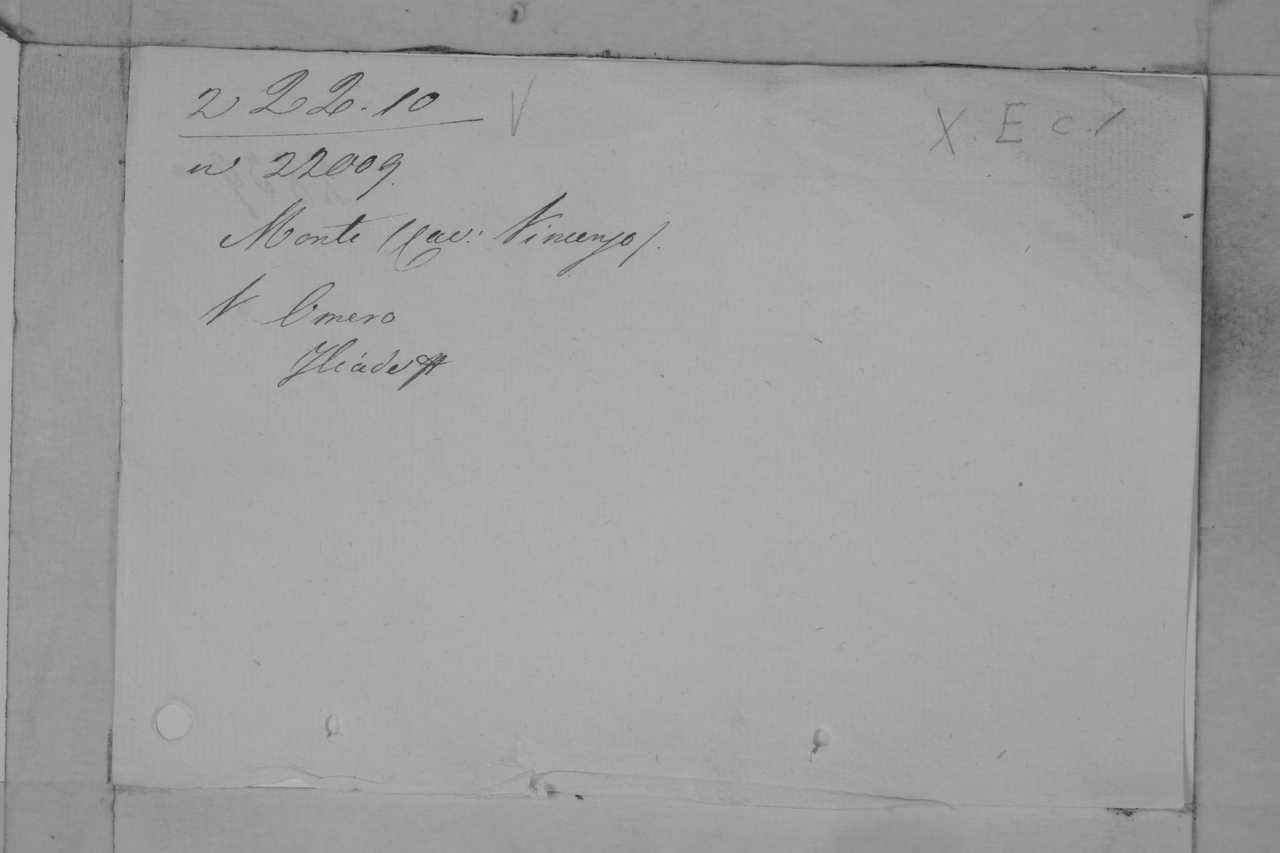 2 22.10 V X. E c. 1
n 22009.
Monti (Cav: Vincenzo).
V Omero
Iliade